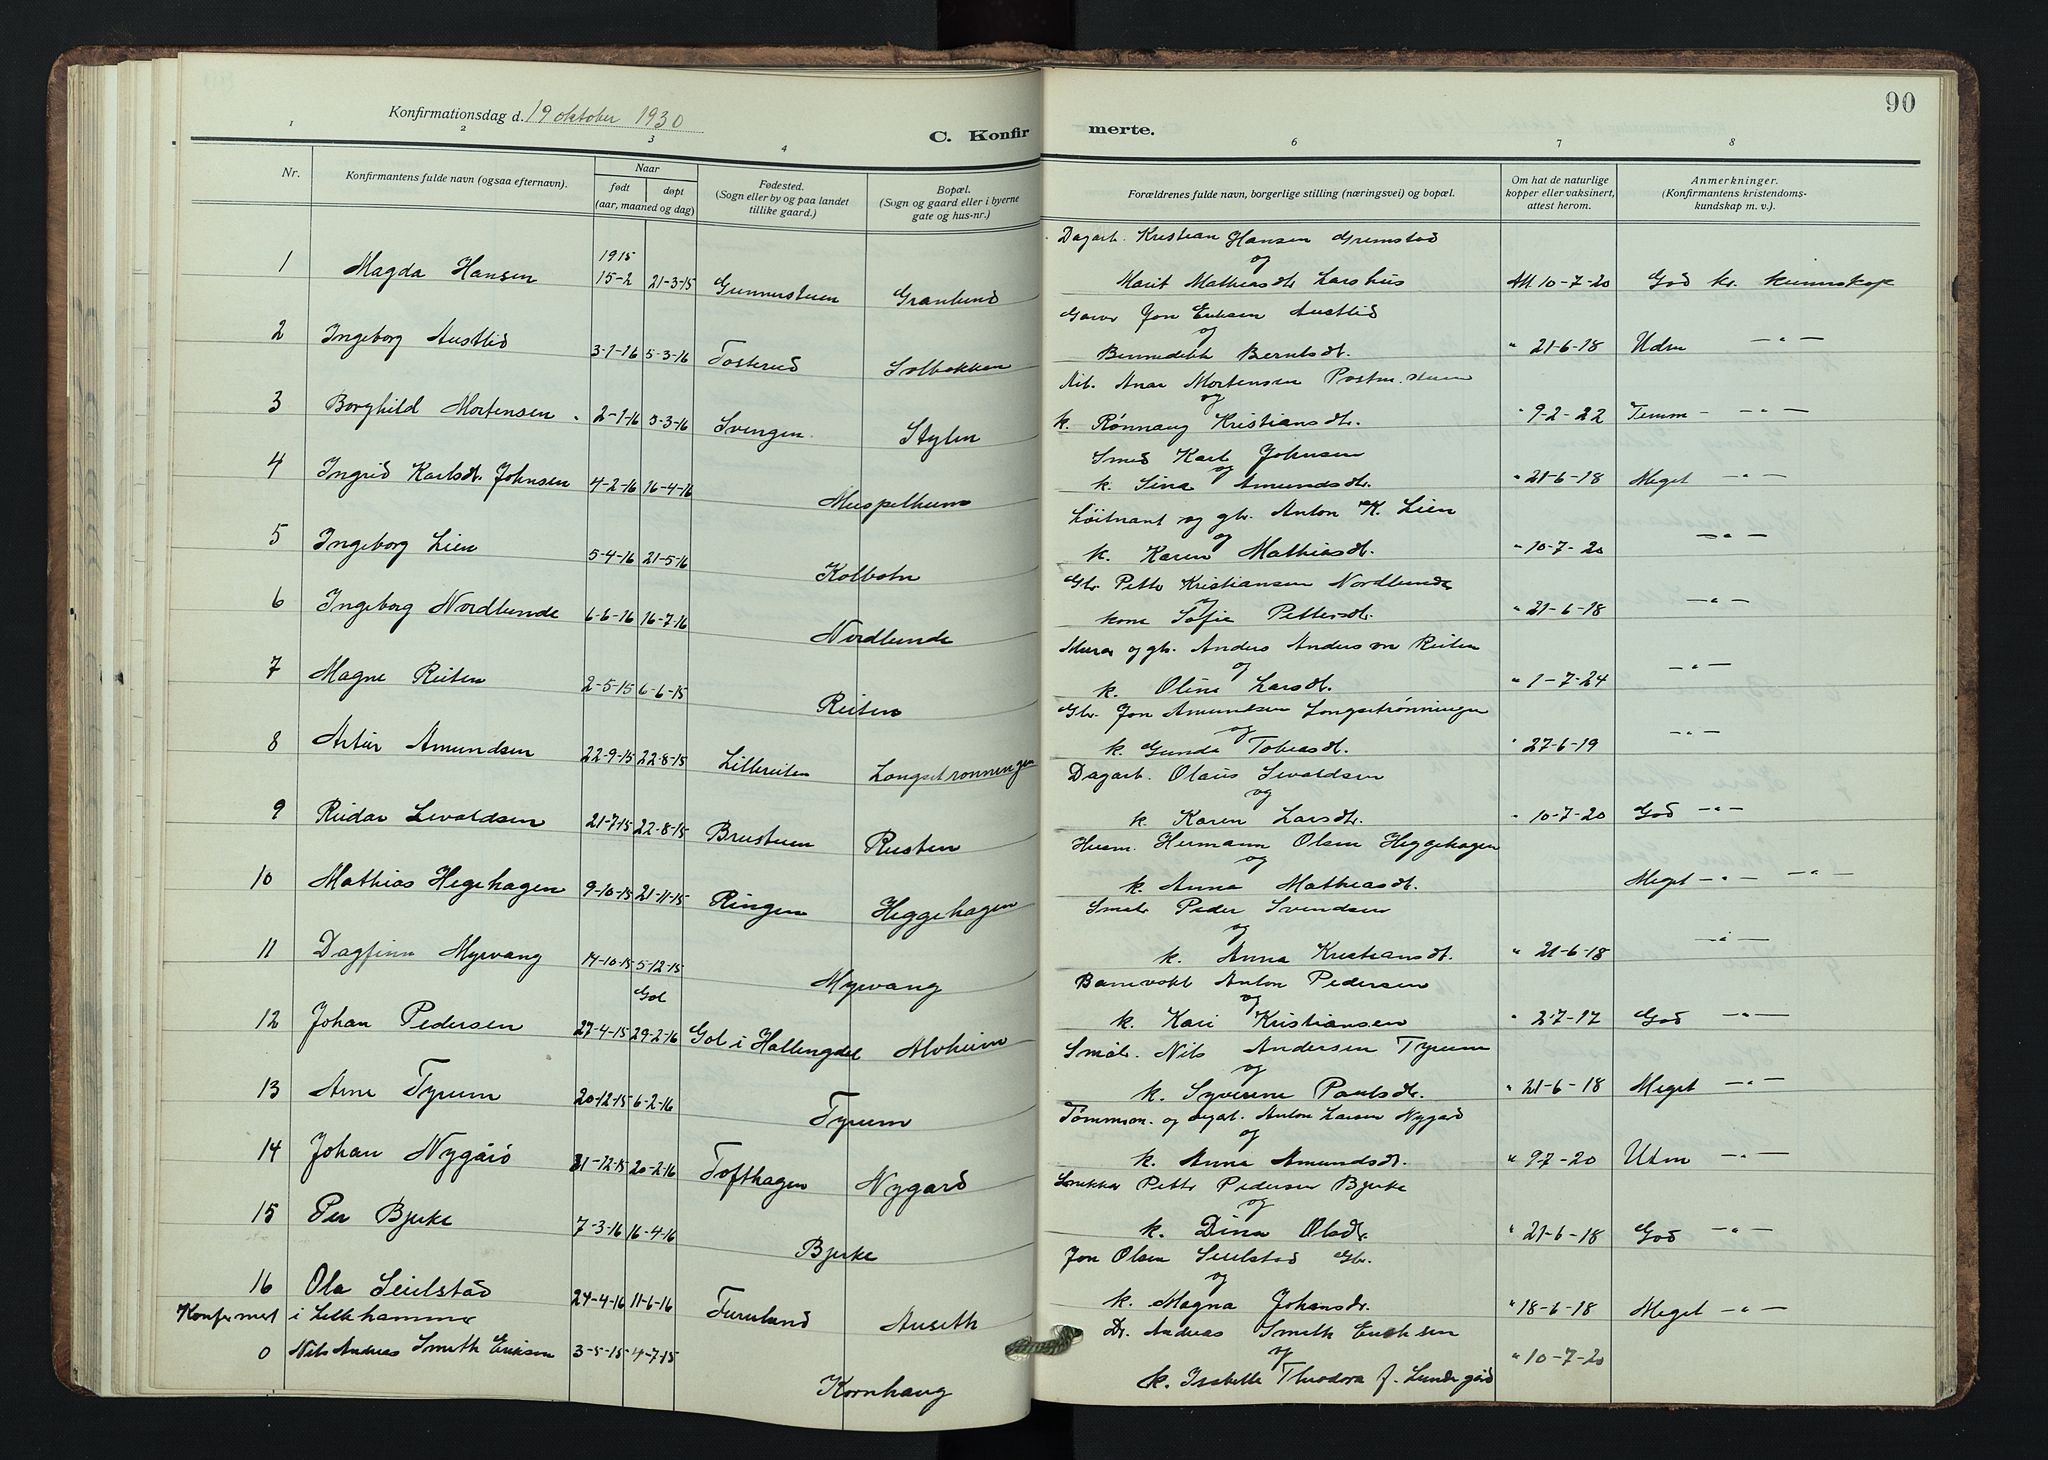 90
Konfirmationsdag d. 19 oktober 1930
C. Konfirmerte.
1 2 3 4 6 7 8
Nr.
Konfirmantens fulde navn (ogsaa efternavn).
Naar
født døpt
(aar, maaned og dag)
Fødested.
(Sogn eller by og paa landet
tillike gaard.)
Bopæl.
(Sogn og gaard eller i byerne
gate og hus-nr.)
Forældrenes fulde navn, borgerlige stilling (næringsvei) og bopæl.
Om hat de naturlige
kopper eller vaksinert,
attest herom.
Anmerkninger.
(Konfirmantens kristendoms-
kundskap m. v.).
1915
Dagarb. Kristian Hansen Gremstad
og
1 Magda Hansen 15-2 21-3-15 Gunnerstuen Granlund Marit Mathiasdt. Larshus Att 10-7-20 God kr. kunnskap
Garver Jon Eriksen Austlid
og
2 Ingeborg Austlid 3-1-16 5-3-16 Fosterud Solbakken Bennedikte Berntsdt. " 21-6-18 Udm — " —
Arb. Anar Mortensen
og
3 Borghild Mortensen 2-1-16 5-3-16 Svengen Stylen k. Rønnaug Kristiansdt. " 9-2-22 Temm — " —
Smed Karl Johnsen
og
4 Ingrid Karlsdt. Johnsen 4-2-16 16-4-16 Muspelheim k. Sina Amundsdt. " 21-6-18 Meget — " —
Løitnant og gbr. Anton K. Lien
og
5 Ingeborg Lien 5-4-16 21-5-16 Kolbotn k. Karen Mathiasdt. " 10-7-20 — " —
Gbr Petter Kristiansen Nordlunde
og
6 Ingeborg Nordlunde 6-6-16 16-7-16 Nordlunde kone Sofie Pettersdt. " 21-6-18 — " —
Murer og gbr. Anders Andersen Reiten
og
7 Magne Reiten 2-5-15 6-6-15 Reiten k. Oline Larsdt. " 1-7-24 — " —
Gbr. Jon Amundsen Longsetrønningen
og
8 Artur Amundsen 22-9-15 22-8-15 Lillereiten Longsetrønningen k. Gunda Tobiasdt. " 27-6-19 — " —
Dagarb. Olaus Sevaldsen
og
9 Reidar Sevaldsen 21-7-15 22-8-15 Brustuen Rusten k. Karen Larsdt. " 10-7-20 God — " —
Husm. Hermann Olsen Heggehagen
og
10 Mathias Hegehagen 9-10-15 21-11-15 Ringen Heggehagen k. Anna Mathiasdt. Meget — " — — " —
Småbr Peder Svendsen
og
11 Dagfinn Myrvang 14-10-15 5-12-15 Myrvang k. Anna Kristiansdt. " 21-6-18 — " —
Gol
Banevokt Anton Pedersen
og
12 Johan Pedersen 27-4-15 29-2-16 Gol i Hallingdal Alvheim k. Kari Kristiansen " 2-7-17 God — " —
Småbr. Nils Andersen Tyrum
og
13 Arne Tyrum 20-12-15 6-2-16 Tyrum k. Syverine Paulsdt. " 21-6-18 Meget — " —
Tømmerm. og dagarb. Anton Larsen Nygård
og
14 Johan Nygård 31-12-15 20-2-16 Tofthagen Nygard k. Anna Amundsdt. " 9-7-20 Udm — " —
Snekker Petter Pedersen Bjerke
og
15 Per Bjerke 7-3-16 16-4-16 Bjerke k. Dina Olsdt. " 21-6-18 God — " —
Jon Olsen Seielstad Gbr.
og
16 Ola Seielstad 24-4-16 11-6-16 Furulund Auseth k. Magna Johansdt. " 18-6-18 Meget — " —
Konfirmert i Lillehammer
Dr. Andreas Smith Ericksen
og
0 Nils Andreas Smith Eriksen 3-5-15 4-7-15 Kornhaug k. Isabella Theodora f. Lundegård " 10-7-20